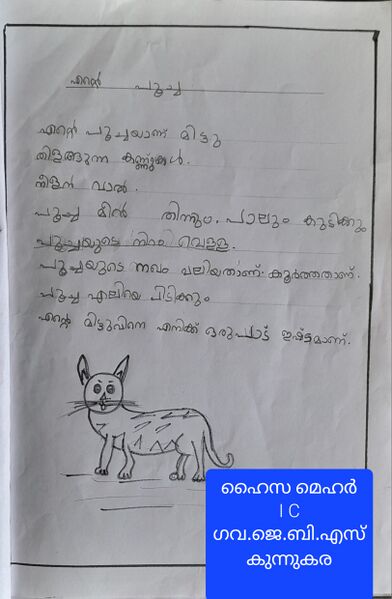 എന്റെ പൂച്ച
എന്റെ പൂച്ചയാണ് മിട്ടു
തിളങ്ങുന്ന കണ്ണുകൾ.
നീളൻ വാൽ.
പൂച്ച മീൻ തിന്നും. പാലും കുടിക്കും
പൂച്ചയുടെ നിറം വെള്ള.
പൂച്ചയുടെ നഖം വലിയതാണ്. കൂർത്തതാണ്.
പൂച്ച എലിയെ പിടിക്കും
എന്റെ മിട്ടുവിനെ എനിക്ക് ഒരുപാട് ഇഷ്ട്ടമാണ്.
ഹൈസ മെഹർ
I C
ഗവ.ജെ.ബി.എസ്
കുന്നുകര